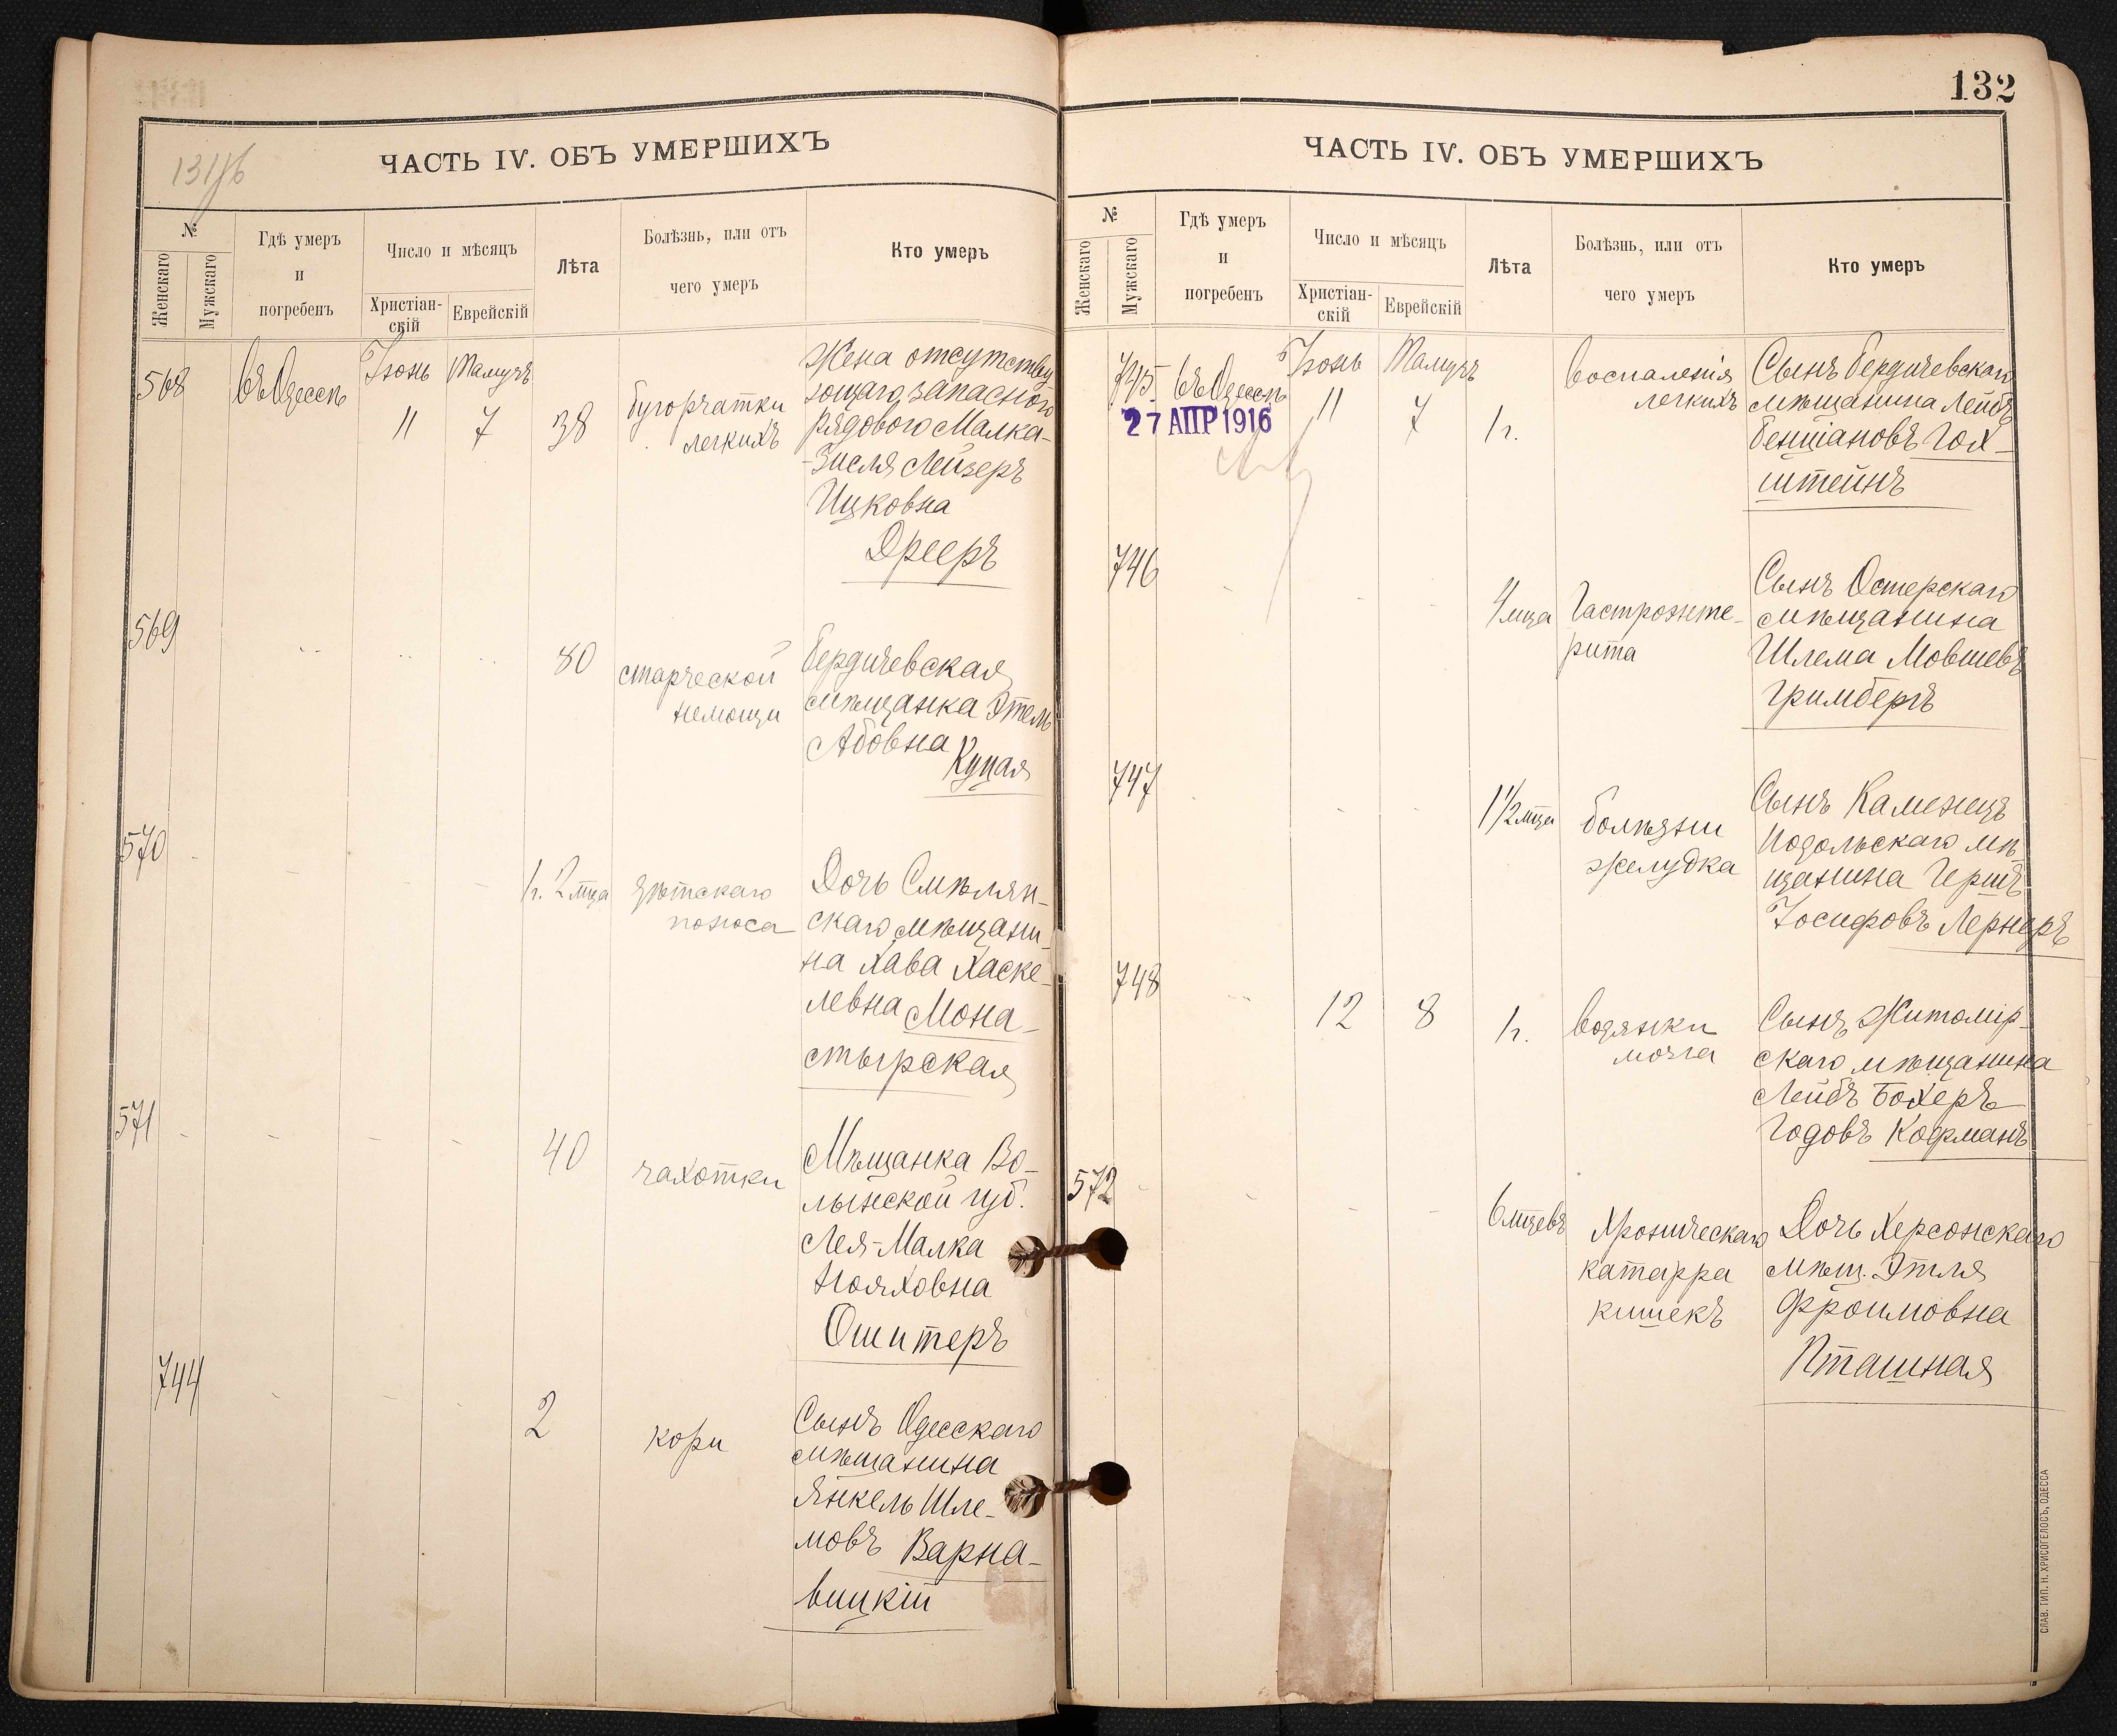 131 об
ЧАСТЬ IV. ОБЪ УМЕРШИХЪ
№
Женскаго
Мужскаго
Гдѣ умеръ
и
погребенъ
Число и мѣсяцъ
Христіан-
скій
Еврейскій
Лѣта
Болѣзнь, или отъ
чего умеръ
Кто умеръ
568
въ Одессѣ
Іюнь
11
Тамузъ
7
38
бугорчатки
легкихъ
Жена отсутству
ющаго запасного
рядового Малка-
-Зисля Лейзеръ
Ицковна
Дрееръ
569
80
старческой
немощи
Бердичевская
мѣщанка Этель
Абовна
Куцая
570
1 г. 2 мца
дѣтскаго
поноса
Дочь Смѣлян-
скаго мѣщани-
на Хава Хаске-
левна Мона-
стырская
571
40
чахотки
Мѣщанка Во-
лынской губ.
Лея-Малка
Нояховна
Ошитеръ
744
2
кори
Сынъ Одесскаго
мѣщанина
Янкель Шле-
мовъ Варна-
вицкій
132
ЧАСТЬ IV. ОБЪ УМЕРШИХЪ
№
Женскаго
Мужскаго
Гдѣ умеръ
и
погребенъ
Число и мѣсяцъ
Христіан-
скій
Еврейскій
Лѣта
Болѣзнь, или отъ
чего умеръ
Кто умеръ
745
въ Одессѣ
27 АПР 1916
Іюнь
11
Тамузъ
7
1 г.
воспаленія
легкихъ
Сынъ Бердичевскаго
мѣщанина Лейбъ
Бенціановъ Гол-
штейнъ
746
4 мца
Гастроэнте-
рита
Сынъ Остерскаго
мѣщанина
Шлема Мовшевъ
Гримбергъ
747
1 1/2 мца
болѣзни
желудка
Сынъ Каменецъ
Подольскаго мѣ-
щанина Гершъ
Іосифовъ Лернеръ
748
12
8
1 г.
водянки
мозга
Сынъ Житомір-
скаго мѣщанина
Лейбъ Бохеръ
Годовъ Кофманъ
572
6 мцевъ
Хроническаго
катарра
кишекъ
Дочь Херсонскаго
мѣщ. Этля
Фроимовна
Пташная
СЛАВ. ТИП. Н. ХРИСОГЕЛОСЪ, ОДЕССА